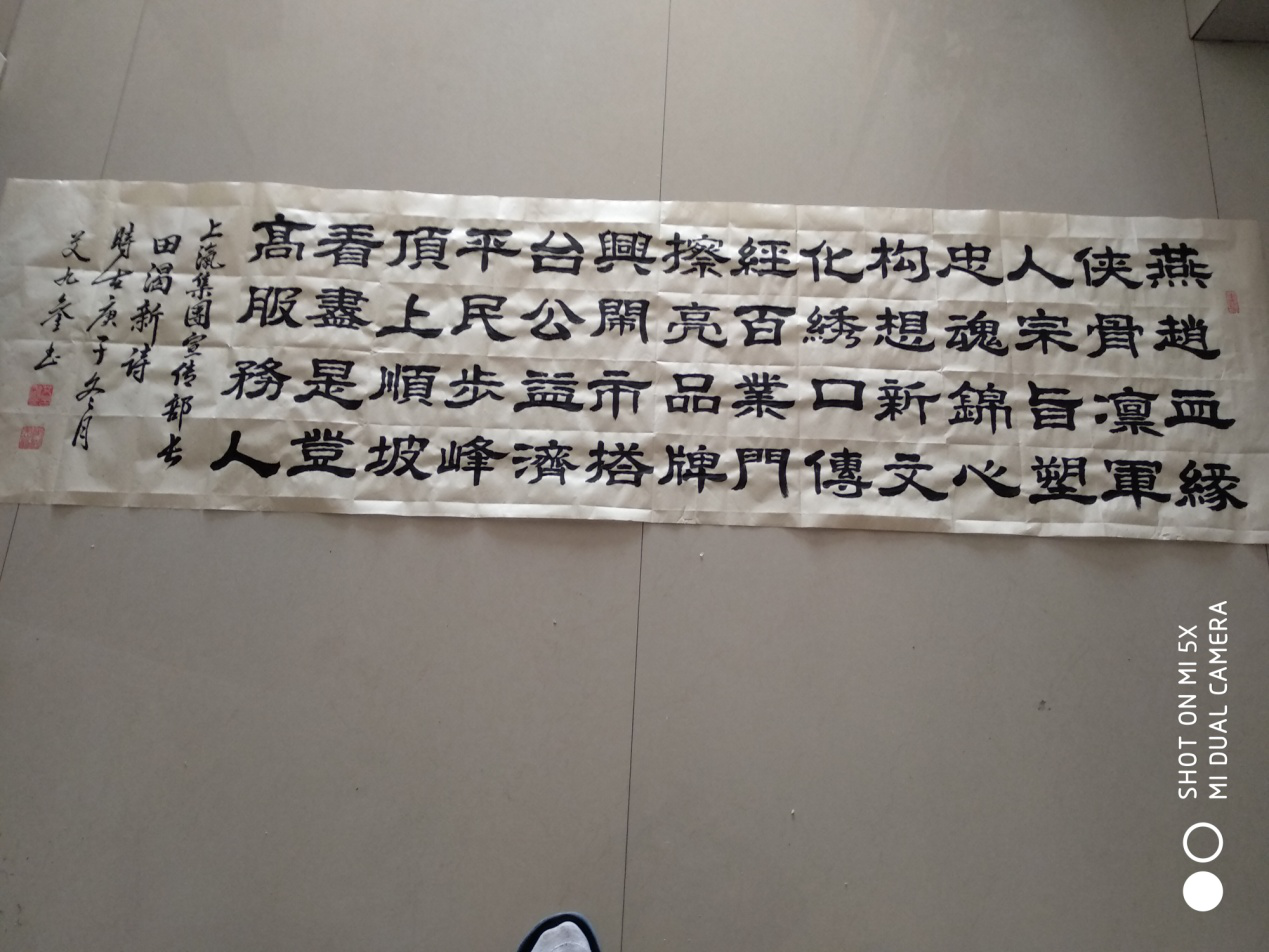 燕趙血緣
俠骨凛軍
人宗旨塑
忠魂錦心
构想新文
化綉口傳
經百業門
擦亮品牌
興開市搭
台公益濟
平民步峰
頂上順坡
看盡是豈
高服務人
上流集團宣传部长
田渴新诗
時在庚子冬月
书
SHOT ON MI 5X
MI DUAL CAMERA